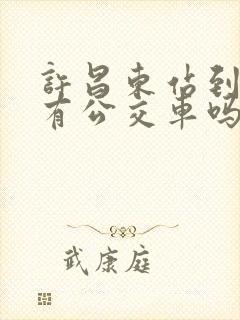 許昌東佔到
有公交車嗎
武康庭